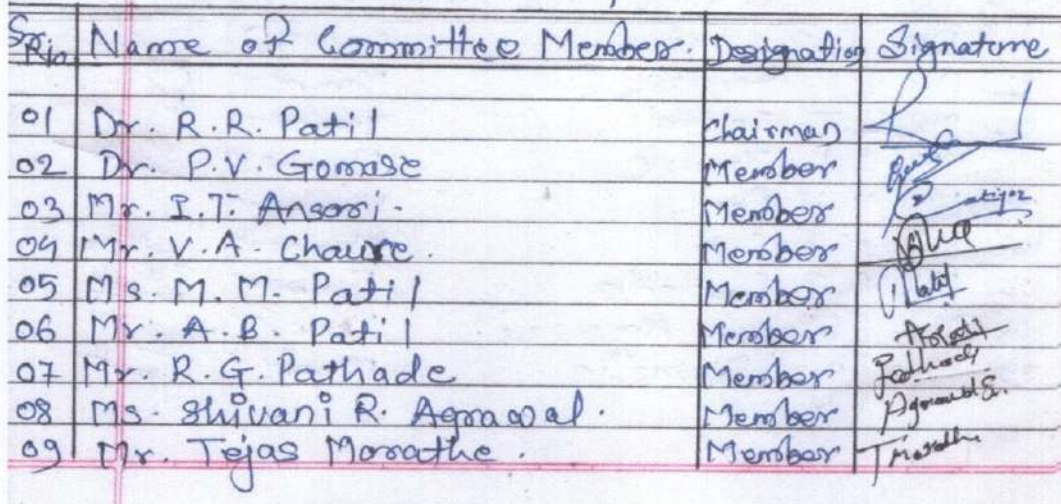 Sr. No Name of Committee Member. Designation Signature
01 Dr. R.R. Patil Chairman
02 Dr. P.V. Gomase Member
03 Mr. I.T. Ansari. Member
04 Mr. V.A. Chaure. Member
05 Ms. M. M. Patil Member Patil
06 Mr. A.B. Patil Member
07 Mr. R.G. Pathade Member Pathade
08 Ms. Shivani R. Agrawal. Member
09 Mr. Tejas Marathe. Member